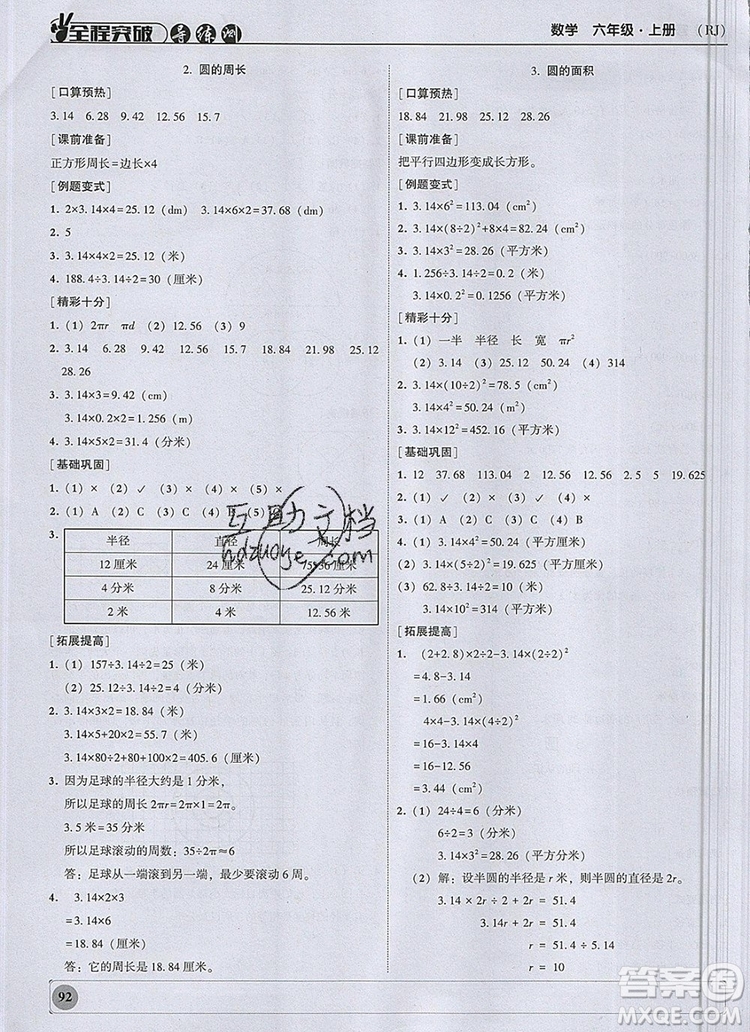 全程突破 导练测
数学 六年级·上册 (RJ)
2. 圆的周长
[口算预热]
3.14 6.28 9.42 12.56 15.7
[课前准备]
正方形周长=边长×4
[例题变式]
1. 2×3.14×4=25.12 (dm) 3.14×6×2=37.68 (dm)
2. 5
3. 3.14×4×2=25.12 (米)
4. 188.4÷3.14÷2=30 (厘米)
[精彩十分]
1. (1) 2πr πd (2) 12.56 (3) 9
2. 3.14 6.28 9.42 12.56 15.7 18.84 21.98 25.12
28.26
3. 3.14×3=9.42 (cm)
3.14×0.2×2=1.256 (m)
4. 3.14×5×2=31.4 (分米)
[基础巩固]
1. (1) × (2) ✓ (3) × (4) × (5) ×
2. (1) A (2) C (3) C (4) A (5) C
3.
半径 直径 周长
12 厘米 24 厘米 75.36 厘米
4 分米 8 分米 25.12 分米
2 米 4 米 12.56 米
[拓展提高]
1. (1) 157÷3.14÷2=25 (厘米)
(2) 25.12÷3.14÷2=4 (分米)
2. 3.14×3×2=18.84 (厘米)
3.14×5+20×2=55.7 (厘米)
3.14×80÷2+80+100×2=405.6 (厘米)
3. 因为足球的半径大约是 1 分米,
所以足球的周长 2πr=2π×1=2π。
3.5 米=35 分米
所以足球滚动的周数: 35÷2π≈6
答: 足球从一端滚到另一端,大约滚动 6 周。
4. 3.14×2×3
=3.14×6
=18.84 (厘米)
答: 它的周长是 18.84 厘米。
3. 圆的面积
[口算预热]
18.84 21.98 25.12 28.26
[课前准备]
把平行四边形变成长方形。
[例题变式]
1. 3.14×6²=113.04 (cm²)
2. 3.14×(8÷2)²+8×4=82.24 (cm²)
3. 3.14×3²=28.26 (平方米)
4. 1.256÷3.14÷2=0.2 (米)
3.14×0.2²=0.1256 (平方米)
[精彩十分]
1. (1) 一半 半径 长 宽 πr²
(2) 3.14 (3) 25.12 50.24 (4) 314
2. 3.14×(10÷2)²=78.5 (cm²)
3.14×4²=50.24 (cm²)
3. 3.14×12²=452.16 (平方米)
[基础巩固]
1. 12 37.68 113.04 2 12.56 12.56 2.5 5 19.625
2. (1) C (2) A (3) A (4) B (5) C
3. (1) 3.14×4²=50.24 (平方厘米)
(2) 3.14×(5÷2)²=19.625 (平方米)
(3) 62.8÷3.14÷2=10 (分米)
3.14×10²=314 (平方分米)
[拓展提高]
1. (2+2.8)×2÷2-3.14×(2÷2)²
=4.8-3.14
=1.66 (cm²)
4×4-3.14×(4÷2)²
=16-3.14×4
=16-12.56
=3.44 (cm²)
2. (1) 24÷4=6 (分米)
6÷2=3 (分米)
3.14×3²=28.26 (平方分米)
(2) 解: 设半圆的半径是 r 米,则半圆的直径是 2r 米。
3.14×2r÷2+2r=51.4
3.14r+2r=51.4
r=51.4÷5.14
r=10
92
互助文档
hdzuoye.com
答案圈
MXQE.COM